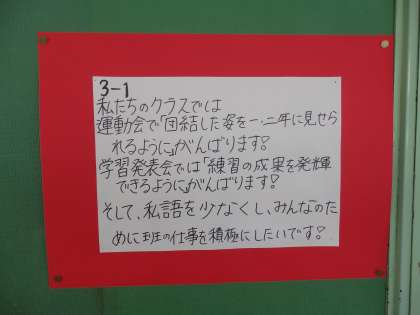 3-1
私たちのクラスでは
運動会で「団結した姿を一・二年に見せら
れるように」がんばります!
学習発表会では「練習の成果を発揮
できるように」がんばります!
そして、私語を少なくし、みんなのた
めに班の仕事を積極にしたいです!